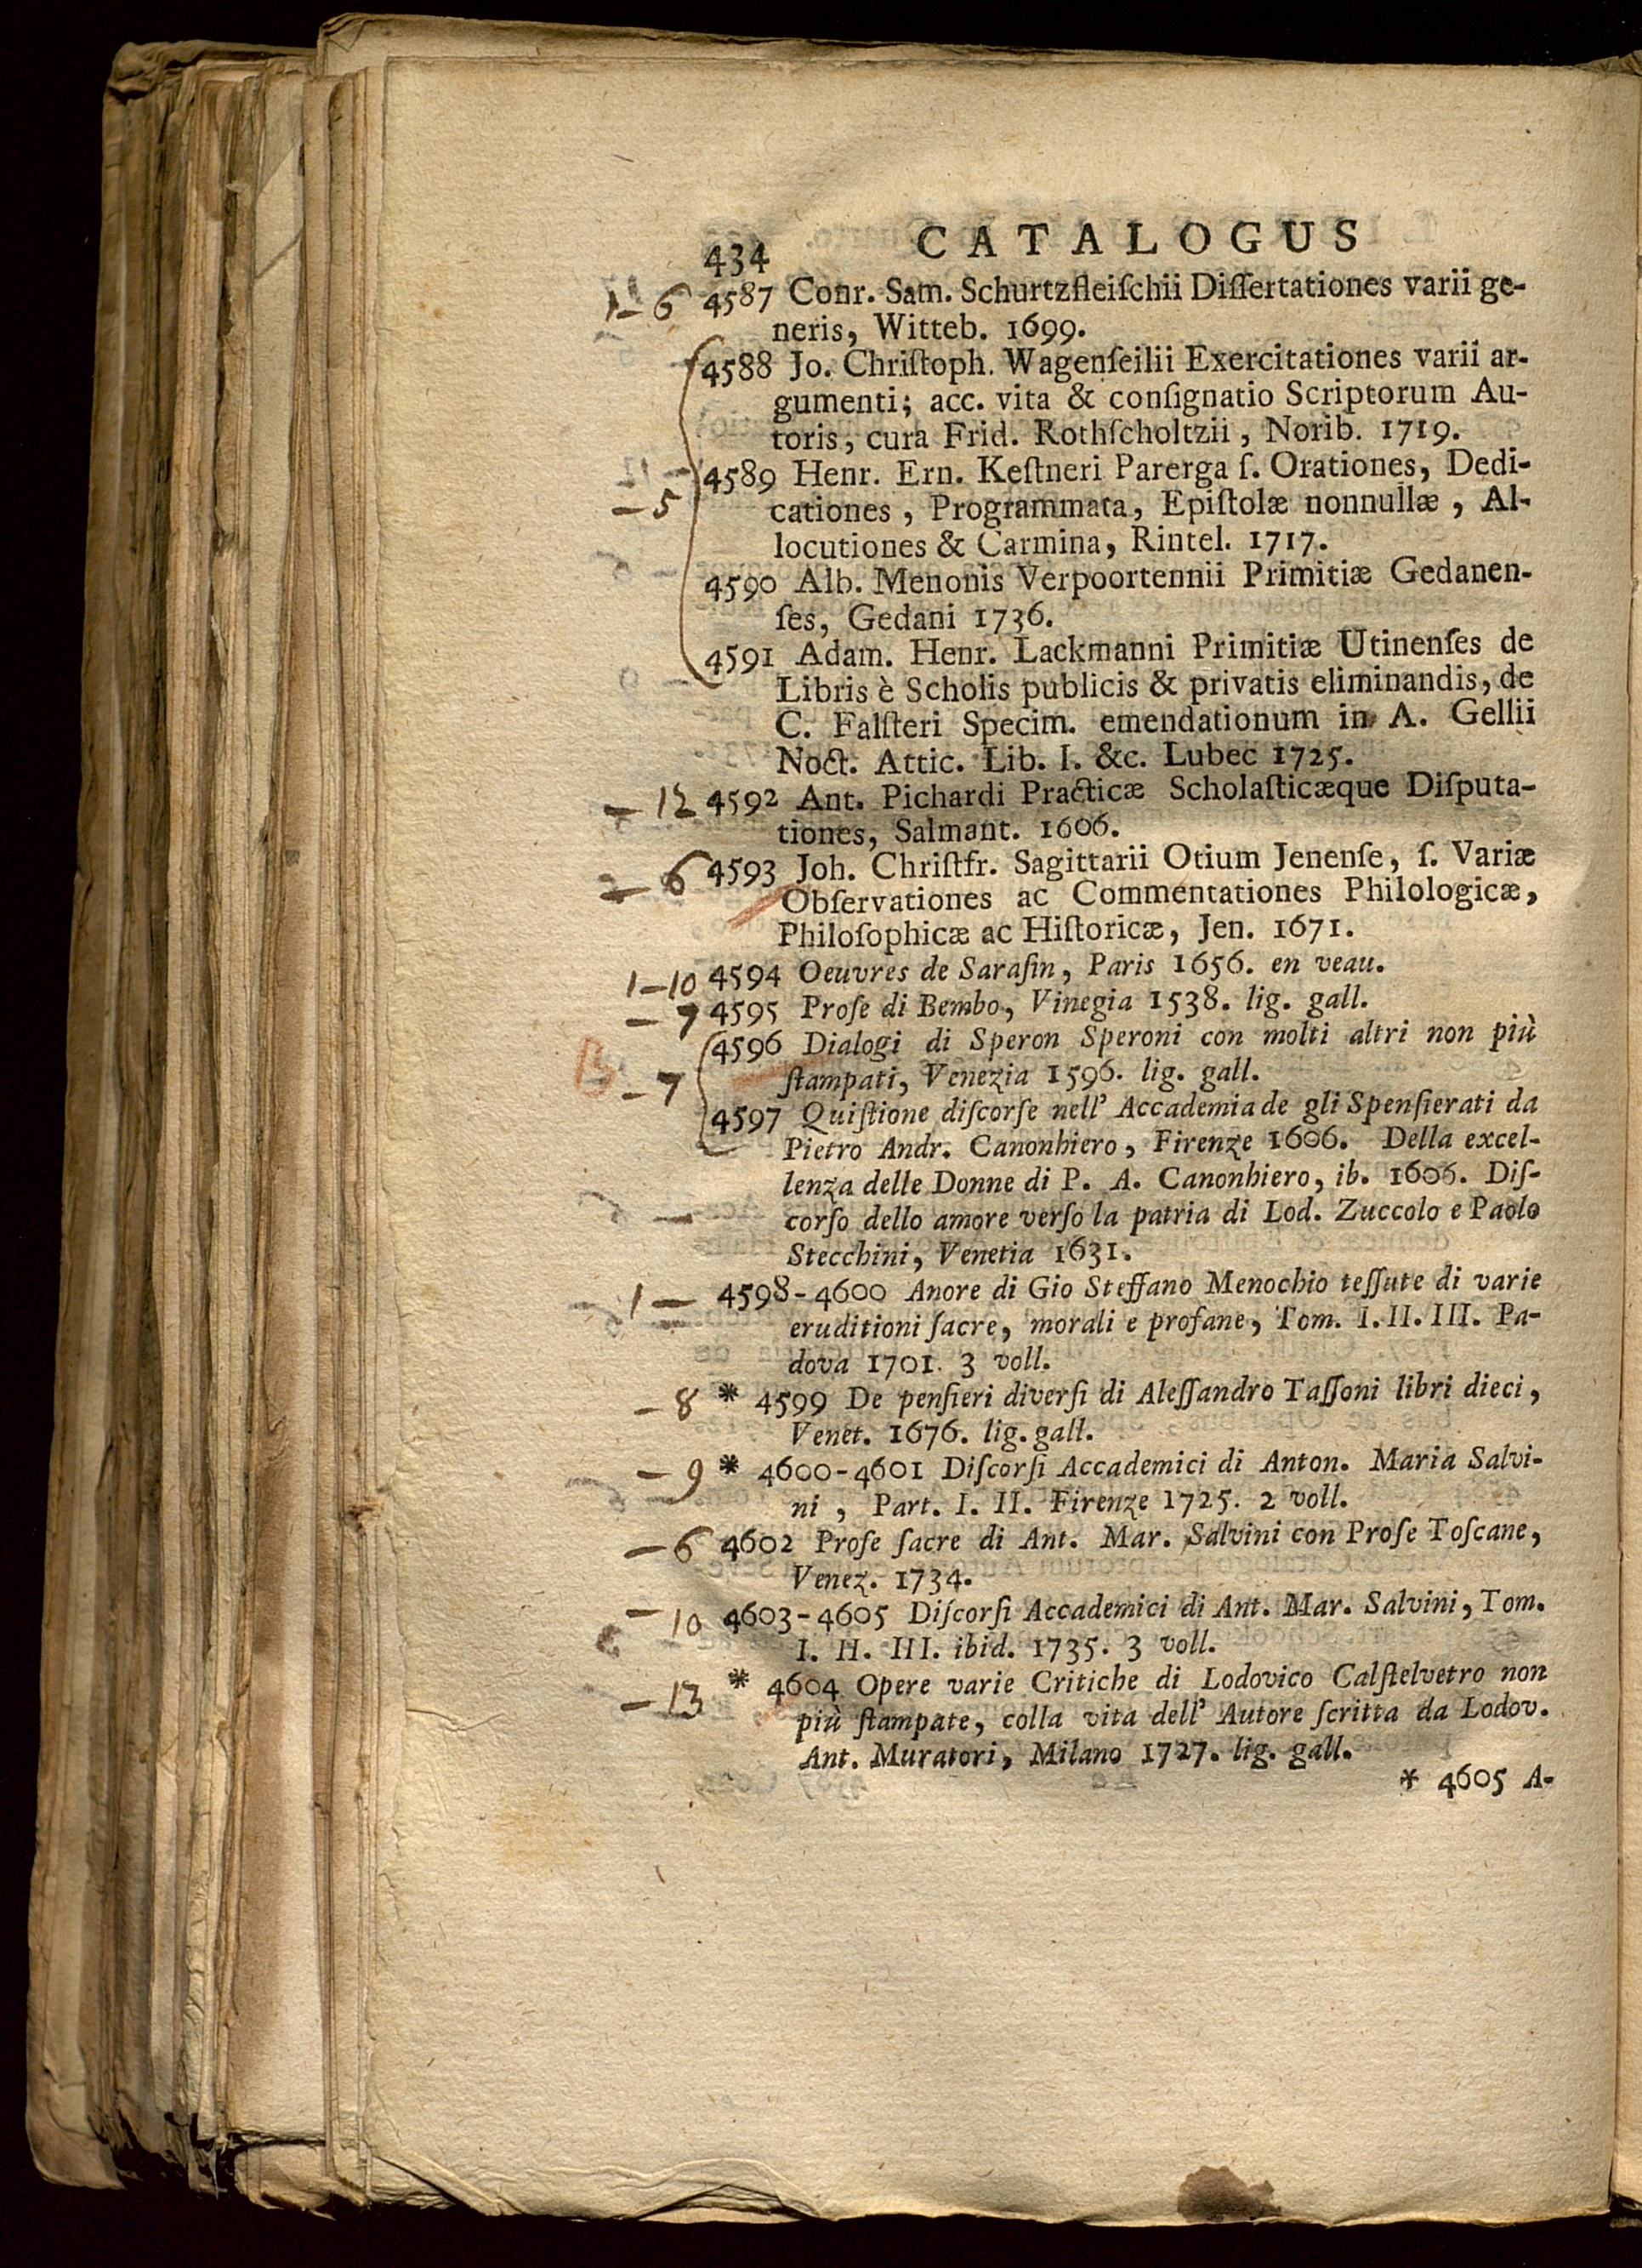 434 CATALOGUS
1-6 4587 Conr. Sam. Schurtzfleiſchii Diſſertationes varii ge-
neris, Witteb. 1699.
4588 Jo. Chriſtoph. Wagenſeilii Exercitationes varii ar-
gumenti; acc. vita & conſignatio Scriptorum Au-
toris, cura Frid. Rothſcholtzii, Norib. 1719.
4589 Henr. Ern. Keſtneri Parerga ſ. Orationes, Dedi-
-5 cationes, Programmata, Epiſtolæ nonnullæ, Al-
locutiones & Carmina, Rintel. 1717.
4590 Alb. Menonis Verpoortennii Primitiæ Gedanen-
ſes, Gedani 1736.
4591 Adam. Henr. Lackmanni Primitiæ Utinenſes de
Libris è Scholis publicis & privatis eliminandis, de
C. Falſteri Specim. emendationum in A. Gellii
Noct. Attic. Lib. I. &c. Lubec 1725.
-12 4592 Ant. Pichardi Practicæ Scholaſticæque Diſputa-
tiones, Salmant. 1606.
-6 4593 Joh. Chriſtfr. Sagittarii Otium Jenenſe, ſ. Variæ
Obſervationes ac Commentationes Philologicæ,
Philoſophicæ ac Hiſtoricæ, Jen. 1671.
1-10 4594 Oeuvres de Saraſin, Paris 1656. en veau.
-7 4595 Proſe di Bembo, Vinegia 1538. lig. gall.
4596 Dialogi di Speron Speroni con molti altri non più
B -7 ſtampati, Venezia 1596. lig. gall.
4597 Quiſtione diſcorſe nell' Accademia de gli Spenſierati da
Pietro Andr. Canonhiero, Firenze 1606. Della excel-
lenza delle Donne di P. A. Canonhiero, ib. 1606. Diſ-
corſo dello amore verſo la patria di Lod. Zuccolo e Paolo
Stecchini, Venetia 1631.
1- 4598-4600 Anore di Gio Steffano Menochio teſſute di varie
eruditioni ſacre, morali e profane, Tom. I. II. III. Pa-
dova 1701. 3 voll.
-8 * 4599 De penſieri diverſi di Aleſſandro Taſſoni libri dieci,
Venet. 1676. lig. gall.
-9 * 4600-4601 Diſcorſi Accademici di Anton. Maria Salvi-
ni, Part. I. II. Firenze 1725. 2 voll.
-6 4602 Proſe ſacre di Ant. Mar. Salvini con Proſe Toſcane,
Venez. 1734.
-10 4603-4605 Diſcorſi Accademici di Ant. Mar. Salvini, Tom.
I. II. III. ibid. 1735. 3 voll.
-13 * 4604 Opere varie Critiche di Lodovico Calſtelvetro non
più ſtampate, colla vita dell' Autore ſcritta da Lodov.
Ant. Muratori, Milano 1727. lig. gall.
* 4605 A-